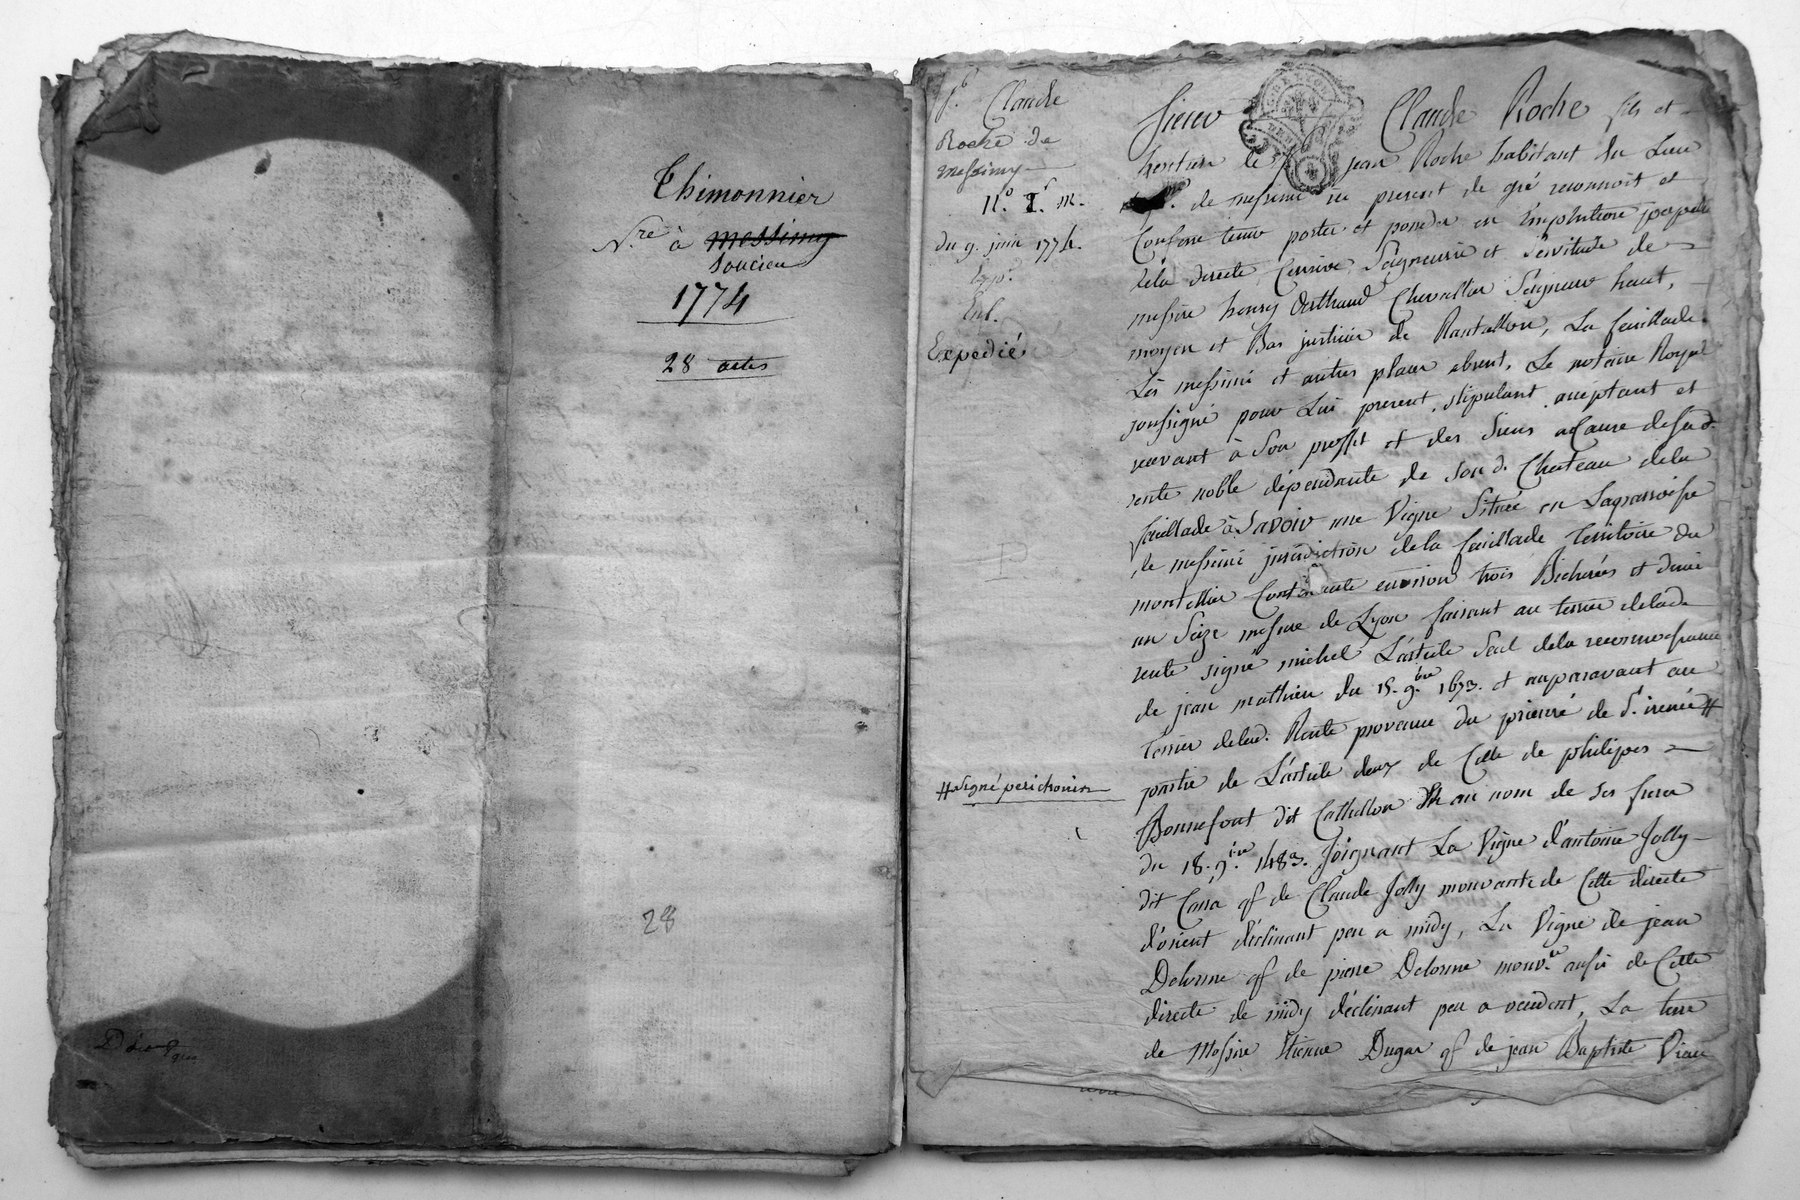 Thimonnier
N.re à messimy
soucieu
1774
28 actes
28
Claude
Roche de
messimy
N.° 1.r m.
du 9. juin 1774.
Exp.
Enl.
Expedié
#signé perichonin
Sieur Claude Roche fils et
heritier de jean Roche habitant du Lieu
de messimi ici present de gré reconnoit et
Confesse tenir porter et posseder en Emphiteose perpetuelle
dela directe Censive, Seigneurie et Servitude de
messire henry Berthaud Chevallier Seigneur haut,
moyen et Bas justicier de Rantallon, La feuillade
Les messimi et autres places absent, Le notaire Royal
soussigné pour Lui present, stipulant acceptant et
recevant à Son proffit et des Siens a Cause de sad.
rente noble dépendante de son d. Chateau dela
feuillade à Savoir une Vigne Située en La parroisse
de messimi jurisdiction dela feuillade Territoire du
montellier Contenante environ trois Bicherées et demi
un Seize mesure de Lyon faisant au terrier delad.
rente signé michel L'article Seul dela reconnoissance
de jean mathieu du 15. 9.bre 1673. et auparavant au
terrier delad. Rente provenue du prieuré de S.t irenée #
partie de L'article deux de Celle de philipes
Bonnefont dit Cathellon au nom de Ses freres
du 18. 9.bre 1483. Joignant La Vigne d'antoine Jolly
dit Cara qf de Claude Jolly mouvante de Cette directe
d'orient déclinant peu a midy, La Vigne de jean
Delorme qf de pierre Delorme mouv.te aussi de Cette
directe de midy déclinant peu a occident, La terre
de Messire Etienne Dugas qf de jean Baptiste Viau